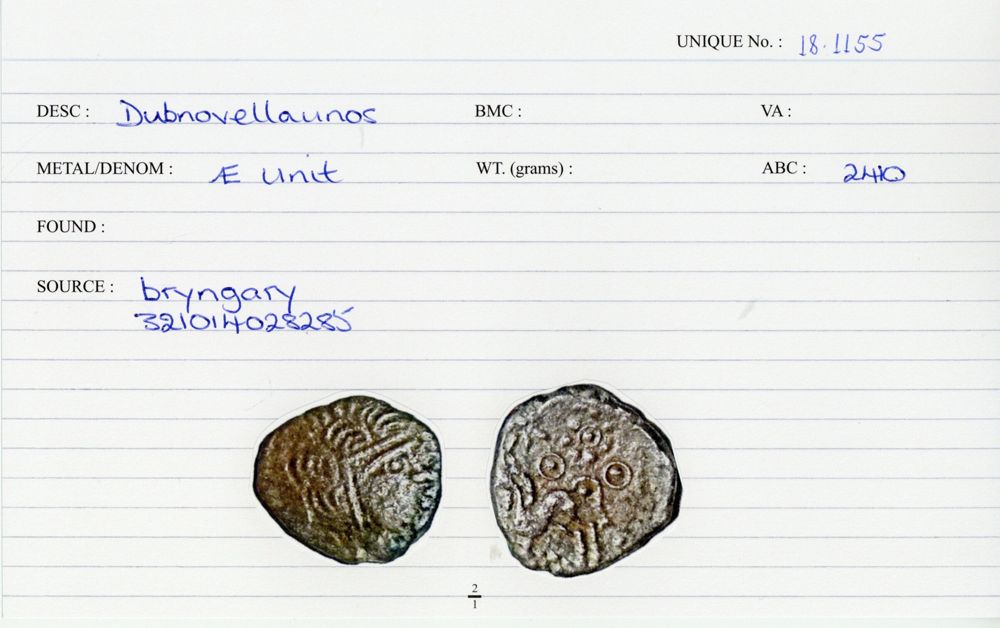 UNIQUE No. : 18.1155
DESC : Dubnovellaunos BMC : VA :
METAL/DENOM : Æ Unit WT. (grams) : ABC : 2410
FOUND :
SOURCE : bryngary
321014028285
2
1